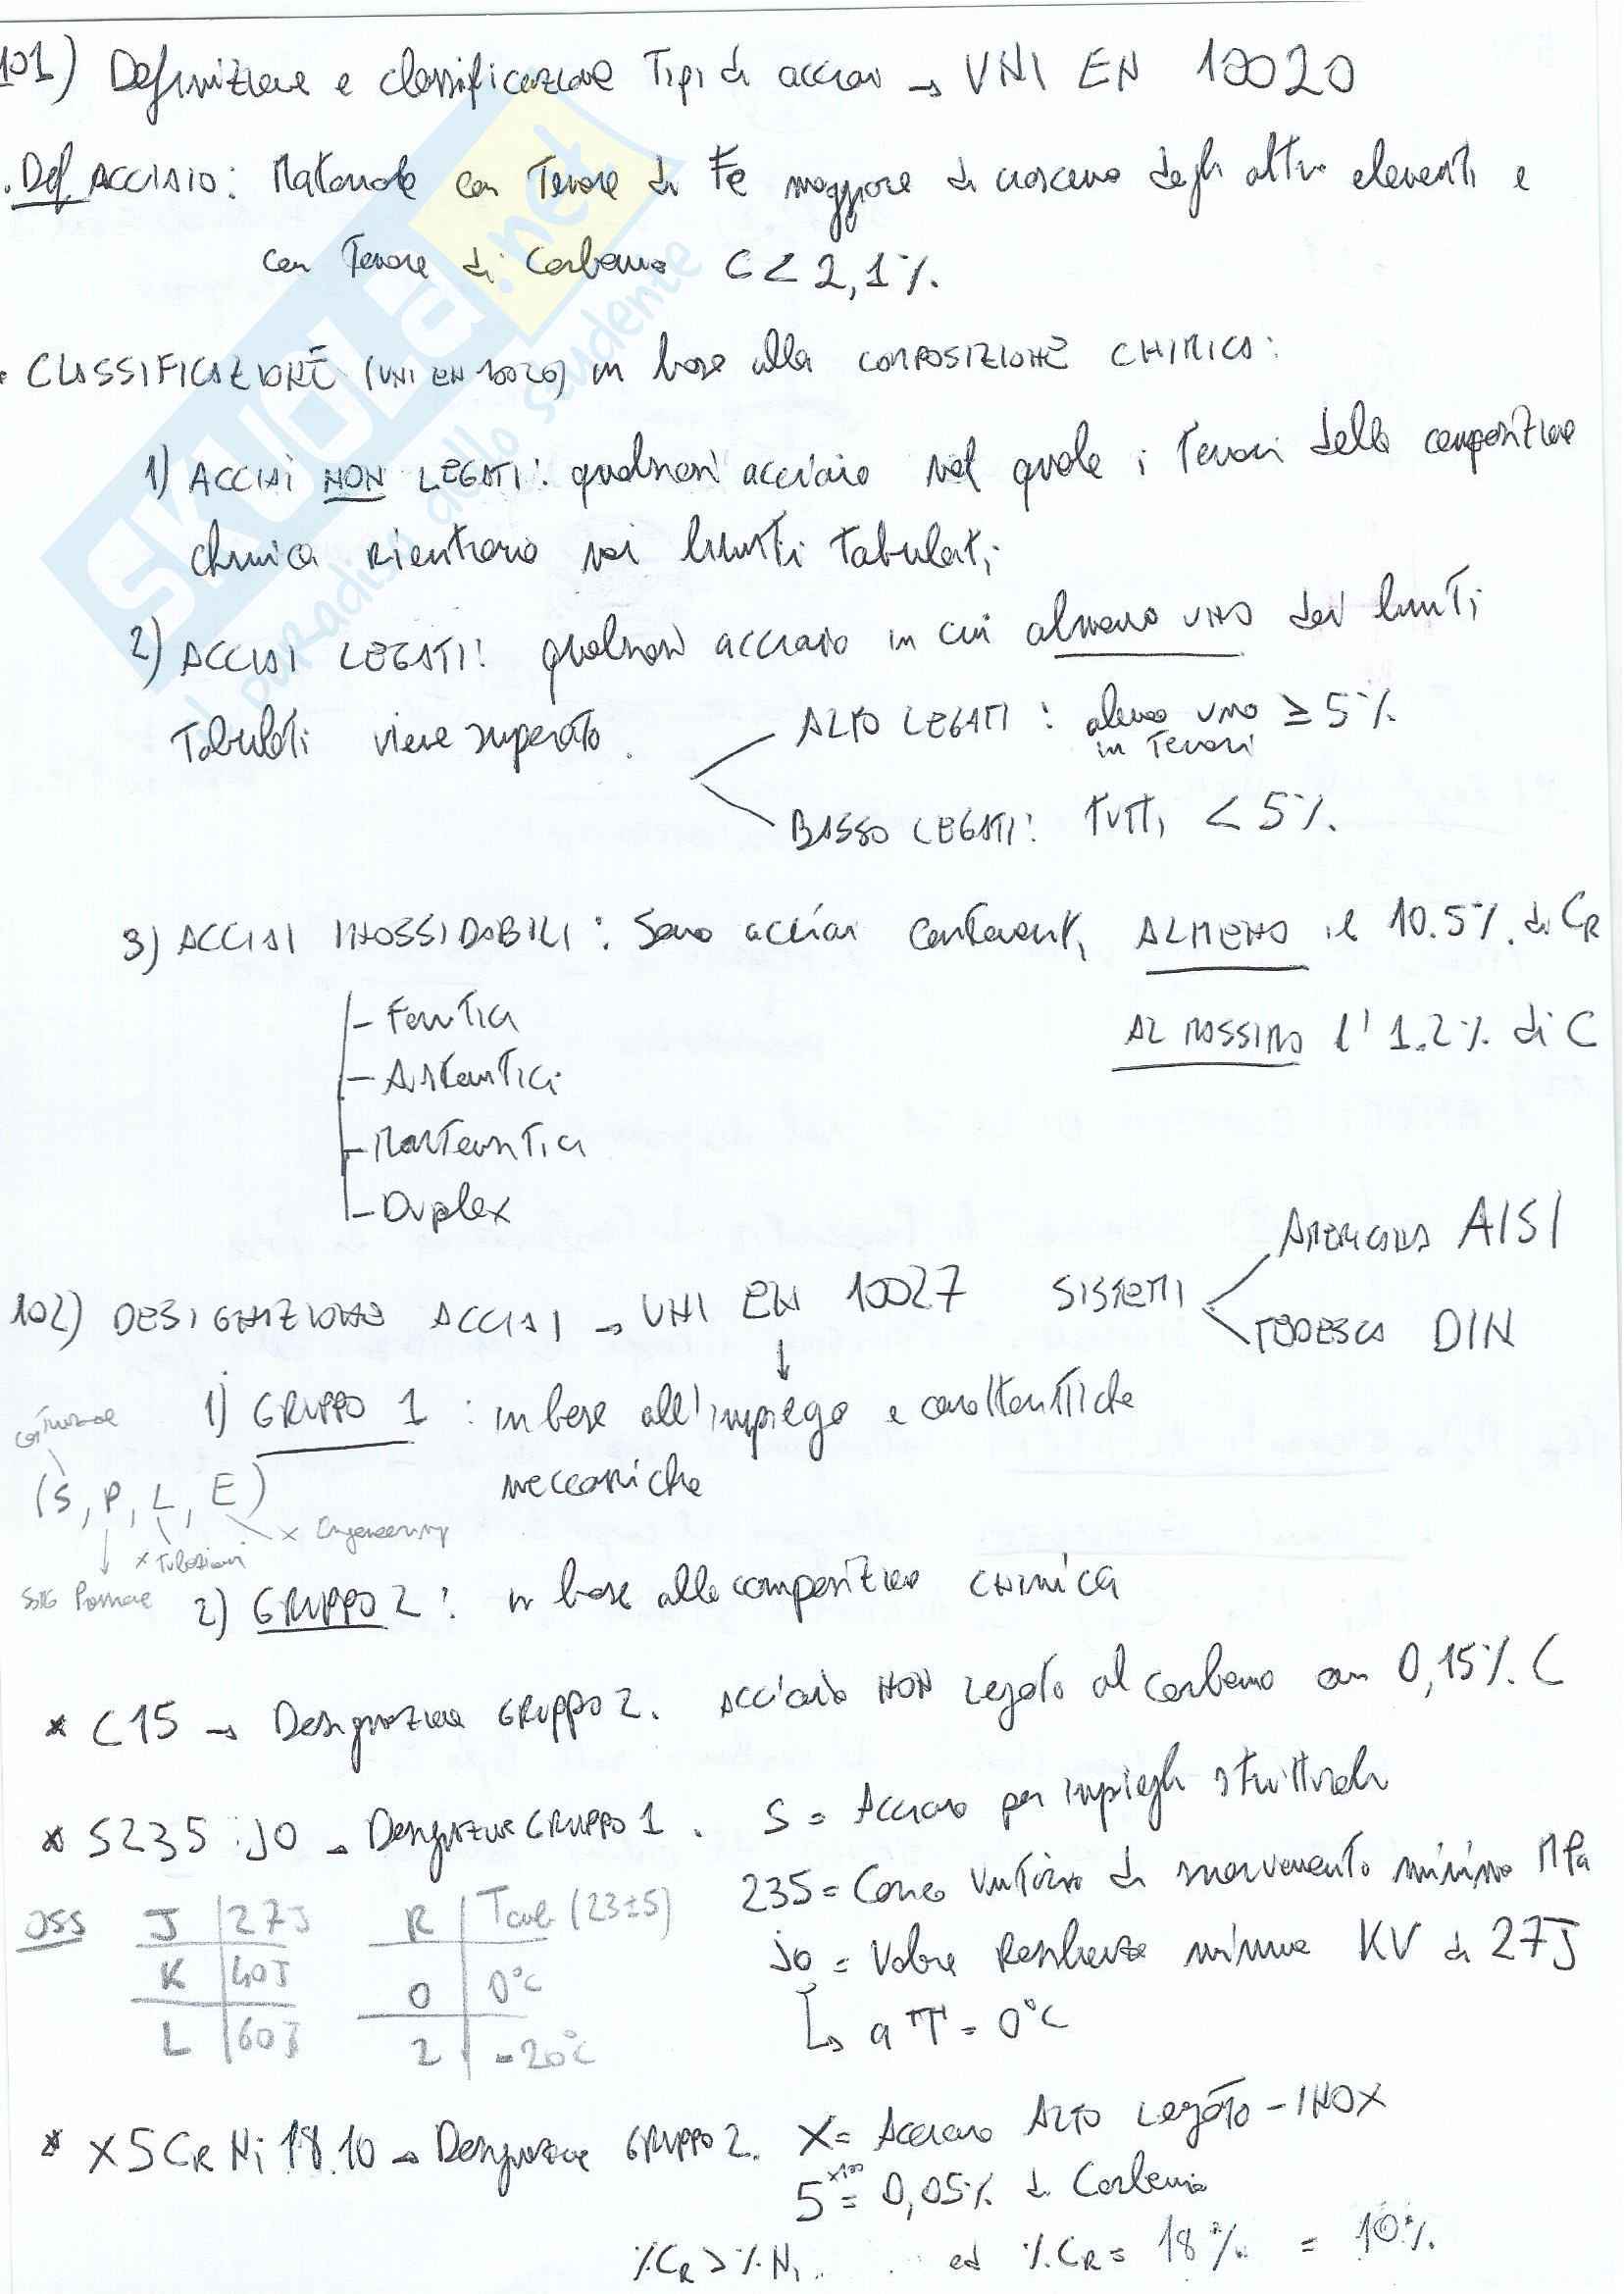 101) Definizione e classificazione Tipi di acciai → UNI EN 10020
. Def ACCIAIO: Materiale con Tenore di Fe maggiore di ciascuno degli altri elementi e
con Tenore di Carbonio C < 2,1%.
• CLASSIFICAZIONE (UNI EN 10020) in base alla COMPOSIZIONE CHIMICA:
1) ACCIAI NON LEGATI: qualsiasi acciaio nel quale i Tenori della composizione
chimica rientrano nei limiti tabulati
2) ACCIAI LEGATI: qualsiasi acciaio in cui almeno UNO dei limiti
Tabulati viene superato.
ALTO LEGATI: almeno uno ≥ 5%
in Tenori
BASSO LEGATI: TUTTI < 5%.
3) ACCIAI INOSSIDABILI: Sono acciai contenenti ALMENO il 10.5% di CR
AL MASSIMO l' 1.2% di C
- Ferritici
- Austenitici
- Martensitici
- Duplex
102) DESIGNAZIONE ACCIAI → UNI EN 10027 SISTEMI
AMERICANA AISI
TEDESCA DIN
1) GRUPPO 1: in base all'impiego e caratteristiche
meccaniche
costruzione
(S, P, L, E)
x Engeneering
x Tubazioni
Sotto Pressione
2) GRUPPO 2: in base alla composizione CHIMICA
* C15 → Designazione GRUPPO 2. Acciaio NON Legato al carbonio con 0,15% C
* S235 J0 → Designazione GRUPPO 1. S = Acciaio per impieghi strutturali
235 = Carico Unitario di snervamento minimo MPa
J0 = Valore Resilienza minima KV di 27J
↳ a T = 0°C
OSS
J | 27J
K | 40J
L | 60J
R | Tamb (23±5)
0 | 0°C
2 | -20°C
* X5CRNi 18.10 → Designazione GRUPPO 2. X = Acciaio ALTO Legato - INOX
5 x100 = 0,05% di Carbonio
%CR > %Ni .. ed %CR = 18% = 10%.
SKUOLA.net
il paradiso dello studente